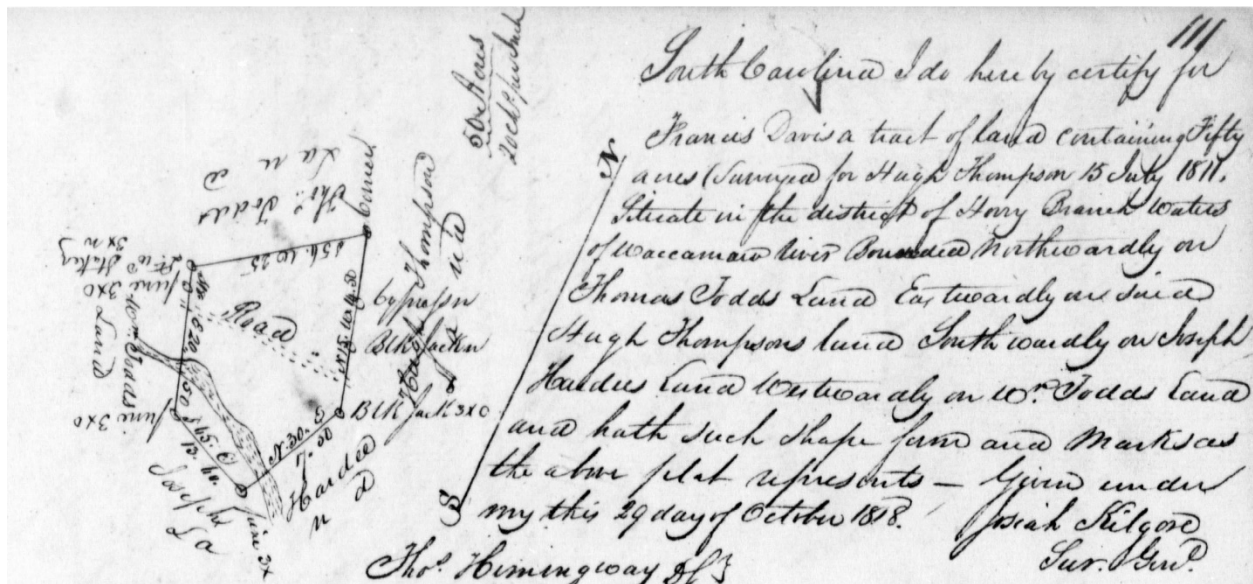 111
South Carolina I do hereby certify for
Francis Davis a tract of land containing Fifty
acres (Surveyed for Hugh Thompson 15 July 1811.
Situate in the district of Horry Branch Waters
of Waccamaw river Bounded Northwardly on
Thomas Todds Land Eastwardly on said
Hugh Thompsons land Southwardly on Joseph
Hardees Land Westwardly on Wm. Todds Land
and hath such shape form and Marks as
the above plat represents — Given under
my this 29 day of October 1818.
Josiah Kilgore
Sur. Genl.
Thos. Himingway D S
50 Acres
20 Chs per Inch
N
S
Thos. Todds
Land
Corner
S 56 W 25
Road
Cypress n
Blk Jack n
Hugh Thompson
Land
Blk Jack 3xo
N. 30. E
7. 50
Joseph Hardee
Land
Pine 3x
S 45 E
Pine 3xo
Wm. Todds
Land
Pine 3xo
Stake
3x n